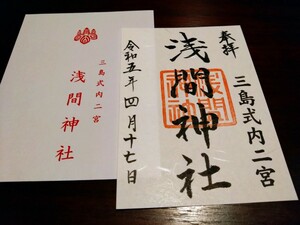 三島式内二宮
浅間神社
奉拝
三島式内二宮
浅間神社
令和五年四月十七日